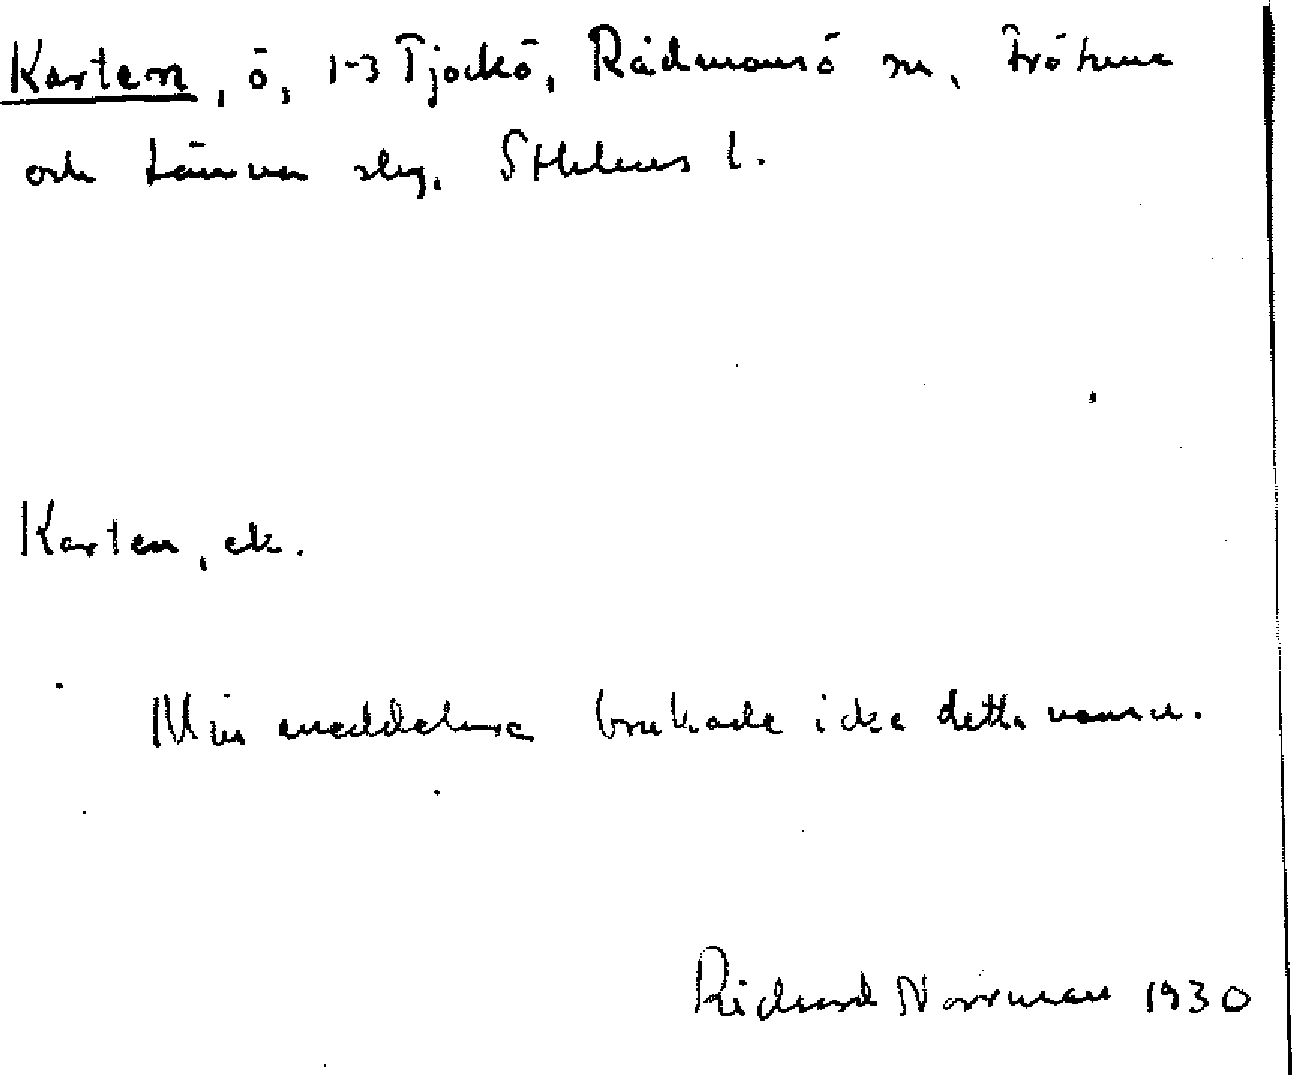 Karten, ö, 1-3 Tjockö, Rådmansö sn, Frötuna
och Länna slg. Sthlms l.
Karten, ek.
Min meddelare brukade icke detta namn.
Richard Norrman 1930